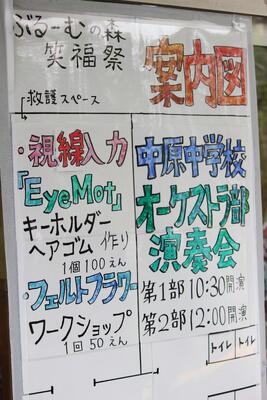 ぶるーむの森
笑福祭
案内図
救護スペース
・視線入力
「EyeMot」
キーホルダー
ヘアゴム作り
1個100えん
・フェルトフラワー
ワークショップ
1回50えん
中原中学校
オーケストラ部
演奏会
第1部 10:30開演
第2部 12:00開演
トイレ トイレ